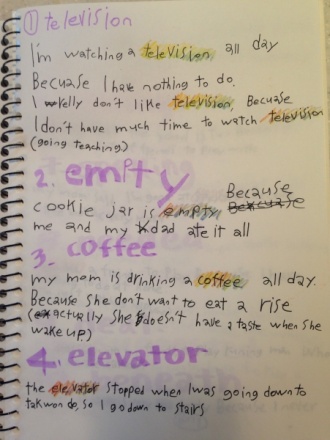 ① television
I'm watching a television, all day
Becuase I have nothing to do.
I relly don't like television, Becuase
I don't have much time to watch television
(going teaching)
2. empty
Because
cookie jar is empty Becxuase
me and my dad ate it all
3. coffee
my mom is drinking a coffee all day.
Because she don't want to eat a rise
(exactually she doesn't have a taste when she
wake up)
4. elevator
the elevator stopped when I was going down to
takwon do, so I go down to stairs